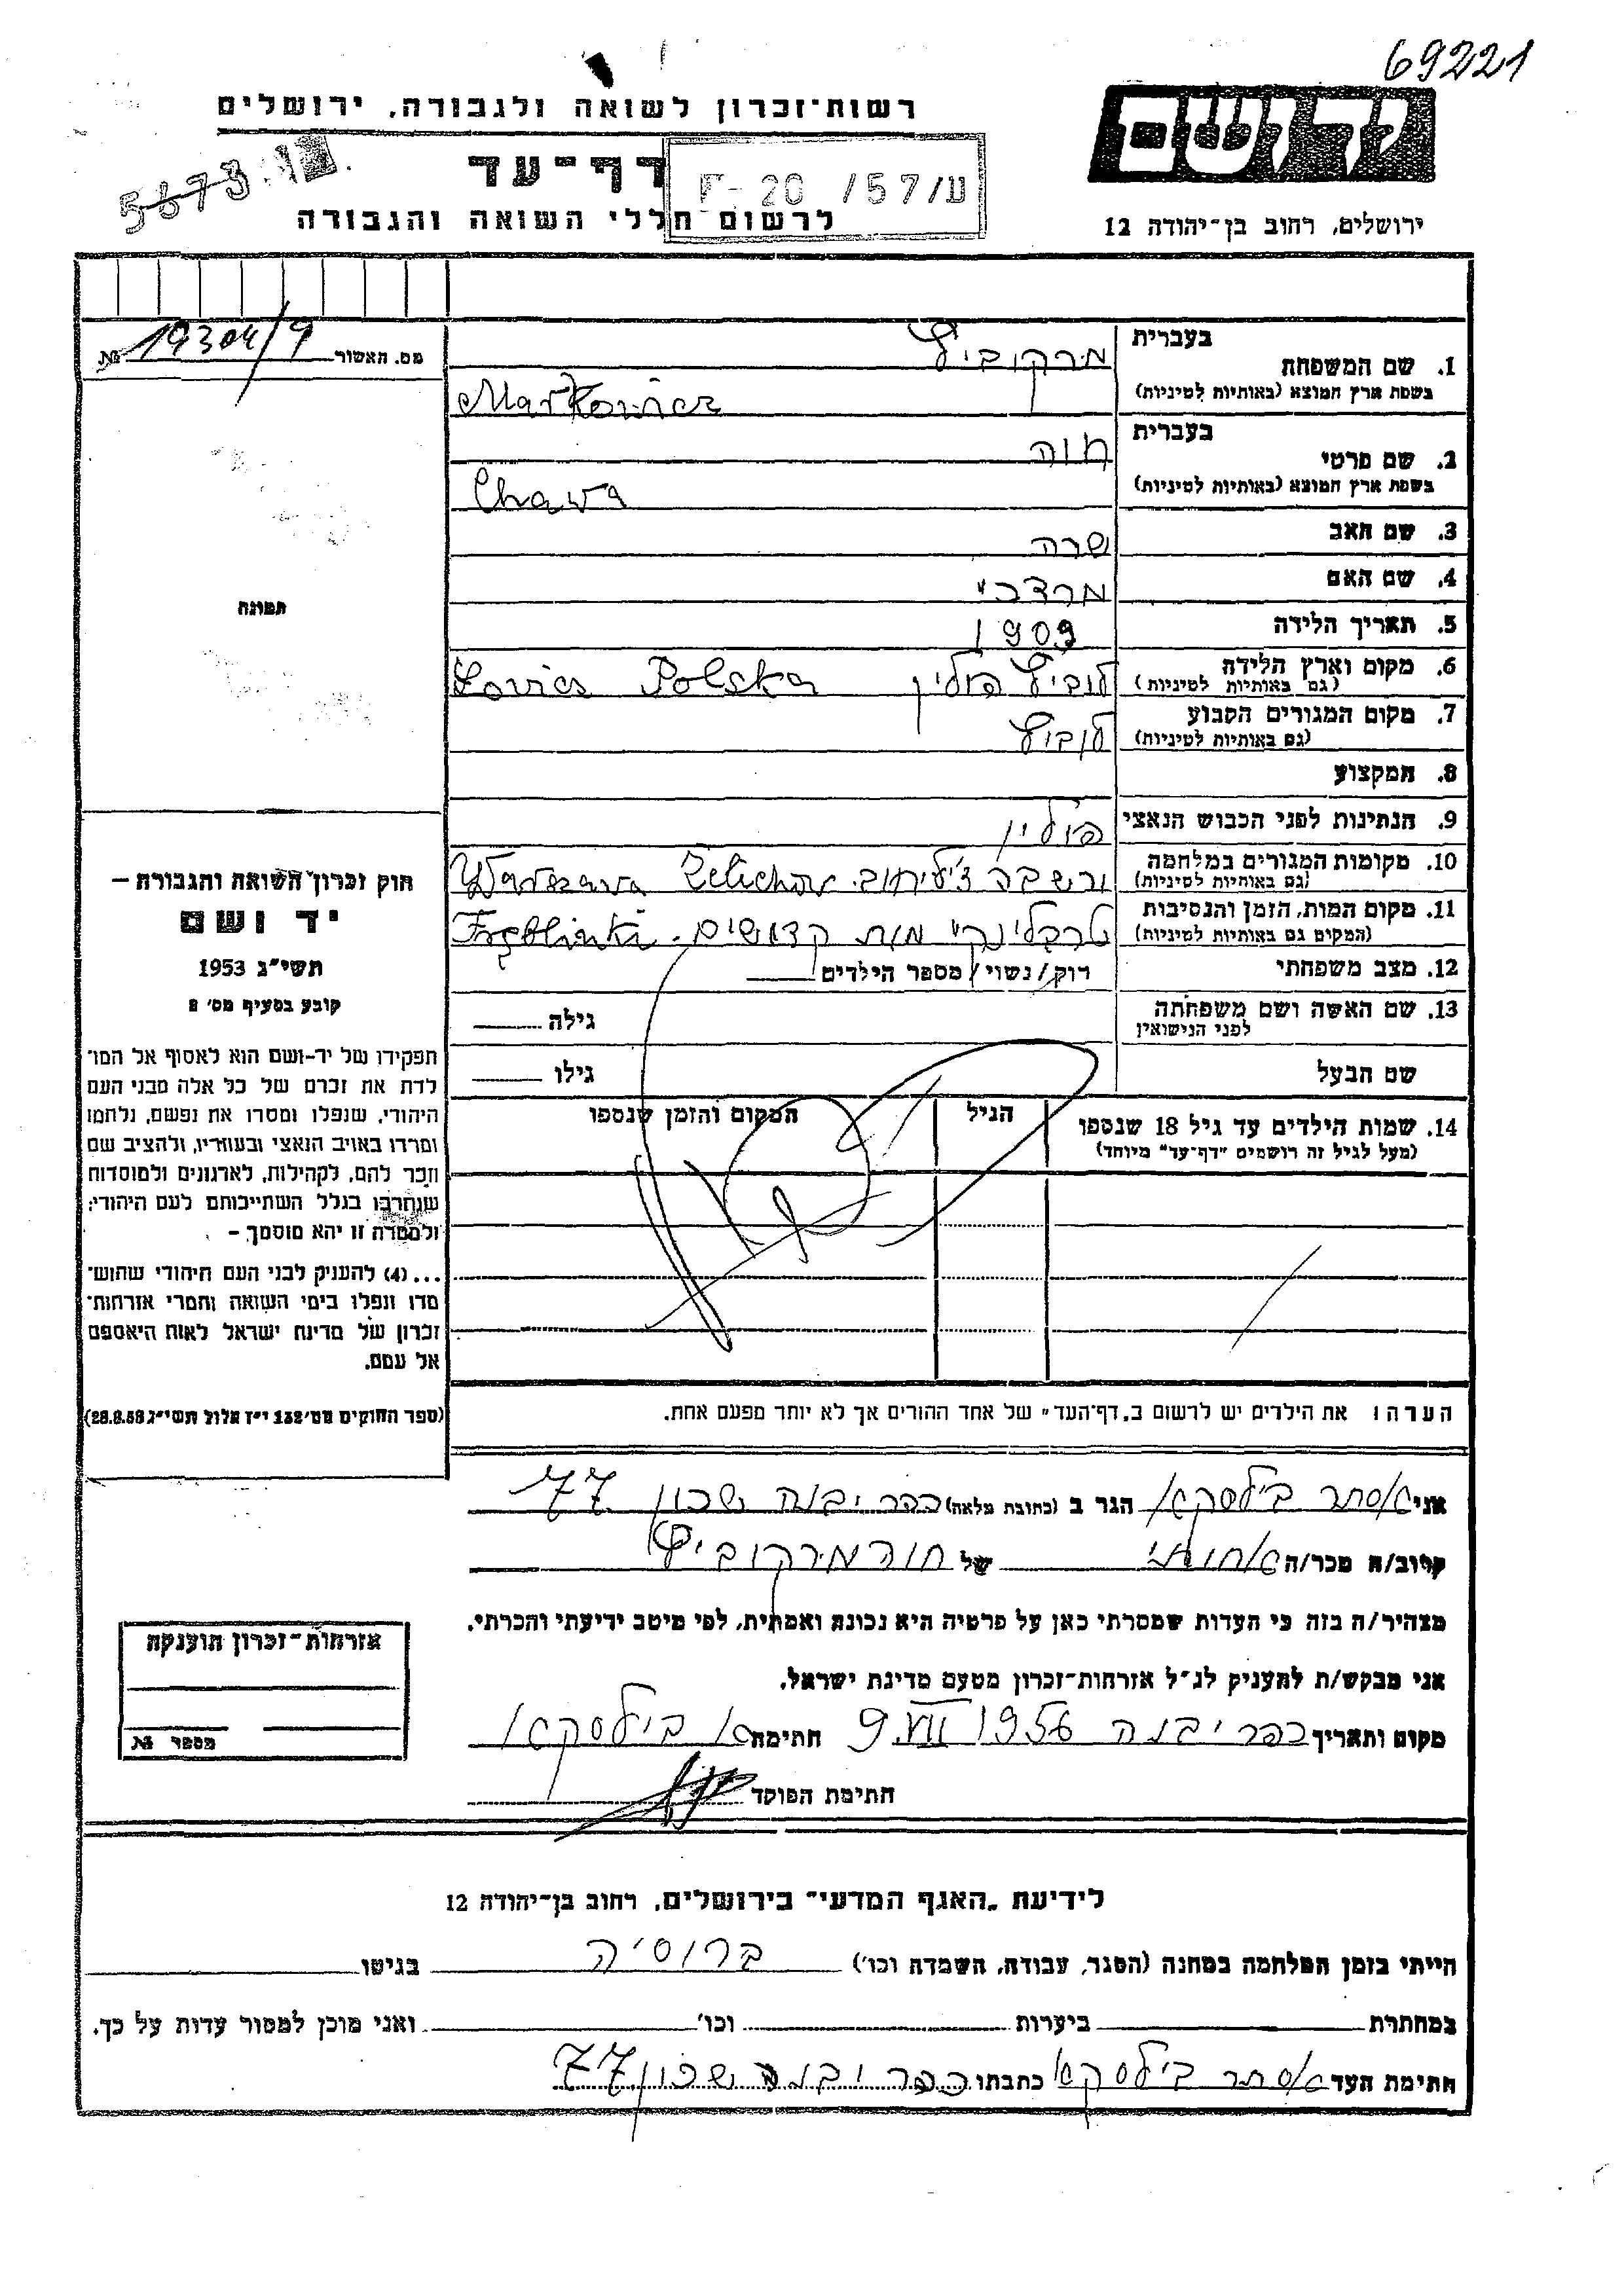 69221
רשות־זכרון לשואה ולגבורה, ירושלים
יד ושם
דף־עד
F-20 /57/ע
5673
לרשום חללי השואה והגבורה
ירושלים, רחוב בן־יהודה 12
מס. האשור 19304/9 №
בעברית
1. שם המשפחה מרקוביץ
בשפת ארץ המוצא (באותיות לטיניות) Markowicz
בעברית
2. שם פרטי חוה
בשפת ארץ המוצא (באותיות לטיניות) Chawa
3. שם האב שרה
4. שם האם מרדכי
תמונה
5. תאריך הלידה 1909
6. מקום וארץ הלידה לוביץ פולין Lovicz Polska
(גם באותיות לטיניות)
7. מקום המגורים הקבוע לוביץ
(גם באותיות לטיניות)
8. המקצוע
9. הנתינות לפני הכבוש הנאצי פולין
10. מקומות המגורים במלחמה ורשבה ז'ליחוב. Warszawa Zelichow
(גם באותיות לטיניות)
11. מקום המות, הזמן והנסיבות טרבלינקי מות קדושים.
(המקום גם באותיות לטיניות)
12. מצב משפחתי רוק/נשוי/מספר הילדים
13. שם האשה ושם משפחתה גילה
לפני הנישואין
שם הבעל גילו
14. שמות הילדים עד גיל 18 שנספו הגיל המקום והזמן שנספו
(מעל לגיל זה רושמים "דף־עד" מיוחד)
חוק זכרון השואה והגבורה –
יד ושם
תשי"ג 1953
קובע בסעיף מס' 2
תפקידו של יד-ושם הוא לאסוף אל המו־
לדת את זכרם של כל אלה מבני העם
היהודי, שנפלו ומסרו את נפשם, נלחמו
ומרדו באויב הנאצי ובעוזריו, ולהציב שם
וזכר להם, לקהילות, לארגונים ולמוסדות
שנחרבו בגלל השתייכותם לעם היהודי;
ולמטרה זו יהא מוסמך –
...(4) להעניק לבני העם היהודי שהוש־
מדו ונפלו בימי השואה והמרי אזרחות־
זכרון של מדינת ישראל לאות היאספם
אל עמם.
(ספר החוקים מס' 132 י"ז אלול תשי"ג 28.8.53)
הערה: את הילדים יש לרשום ב"דף־העד" של אחד ההורים אך לא יותר מפעם אחת.
אני אסתר בילסקא הגר ב (כתובת מלאה) כפר יבנה שכון 77
קרוב/ה מכר/ה אחותי של חוה מרקוביץ
מצהיר/ה בזה כי העדות שמסרתי כאן על פרטיה היא נכונה ואמתית, לפי מיטב ידיעתי והכרתי.
אני מבקש/ת להעניק לנ"ל אזרחות־זכרון מטעם מדינת ישראל.
מקום ותאריך כפר יבנה 9.VII 1956 חתימה א בילסקא
חתימת הפוקד
אזרחות־זכרון הוענקה
מספר №
לידיעת "האגף המדעי" בירושלים, רחוב בן־יהודה 12
הייתי בזמן המלחמה במחנה (הסגר, עבודה, השמדה וכו') ברוסיה בגיטו
במחתרת ביערות וכו' ואני מוכן למסור עדות על כך.
חתימת העד אסתר בילסקא כתבתו כפר יבנה שכון 77